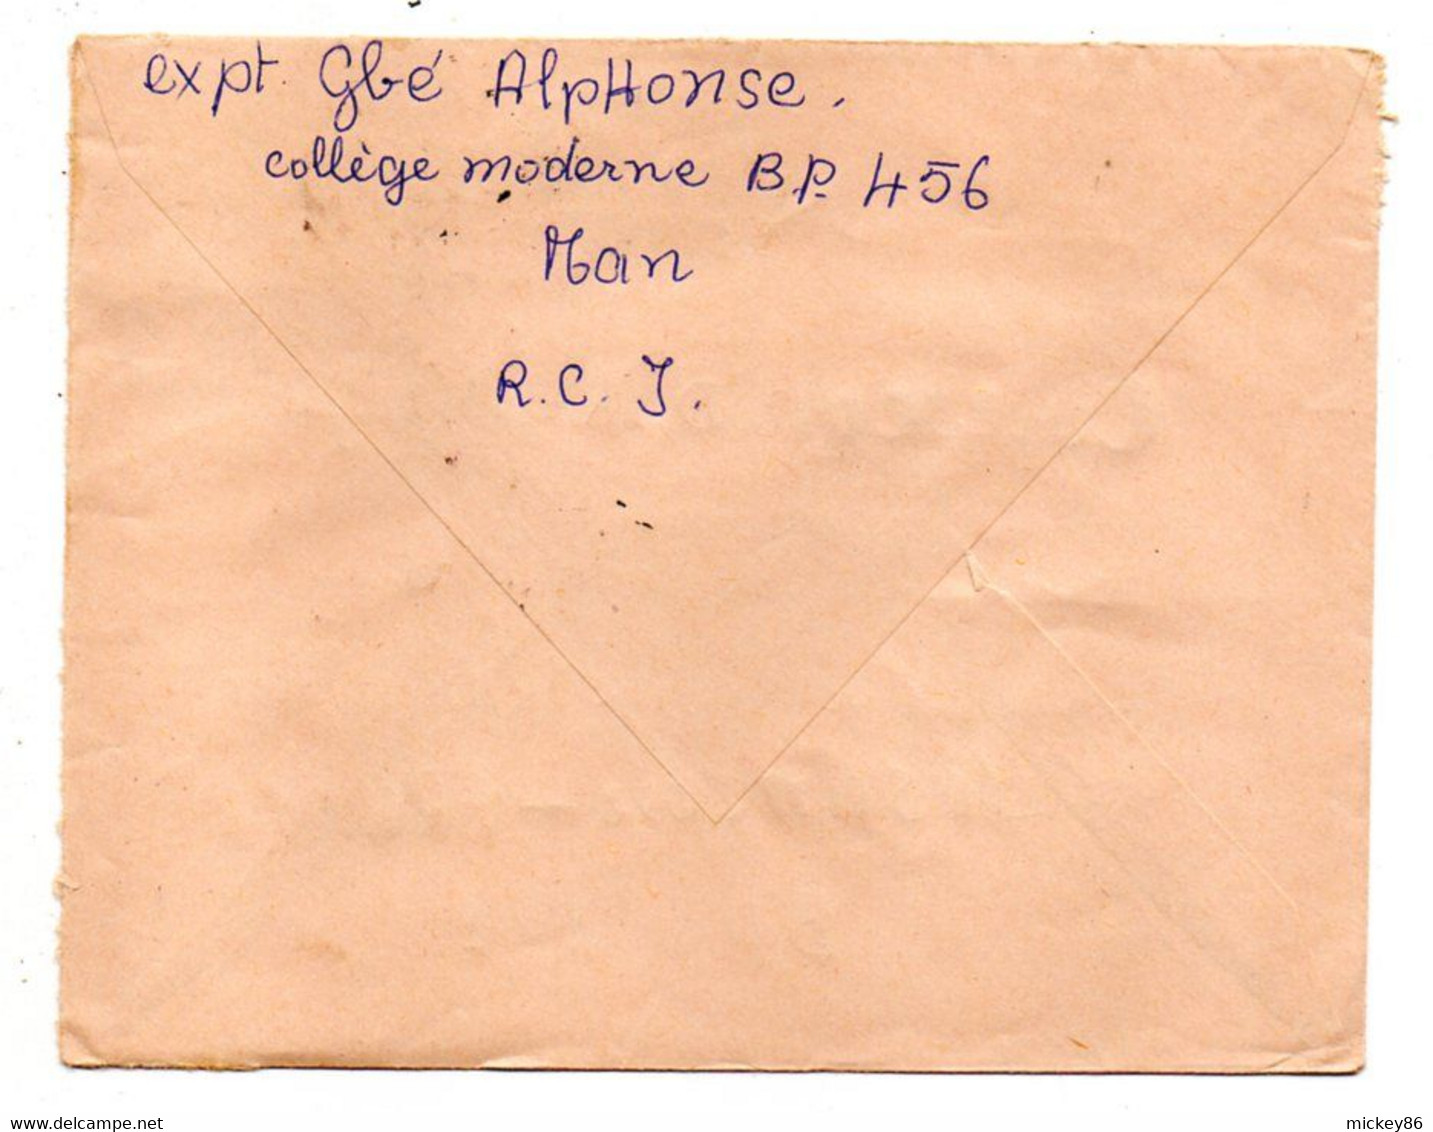 expt. Gbé Alphonse.
collège moderne B.P. 456
Man
R.C.I.
delcampe.net
mickey86